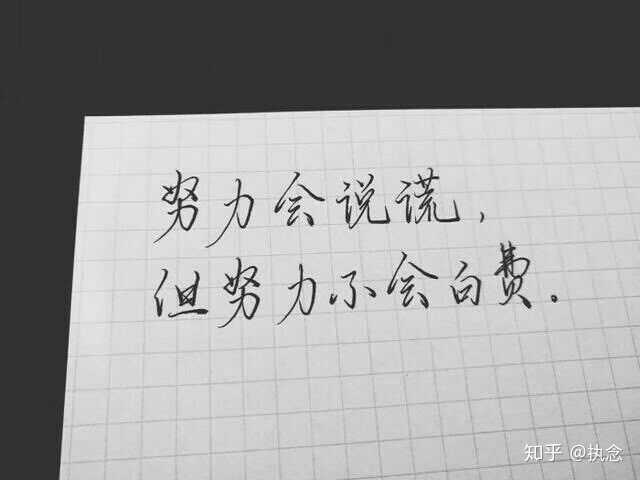 努力会说谎,
但努力不会白费。
知乎 @执念